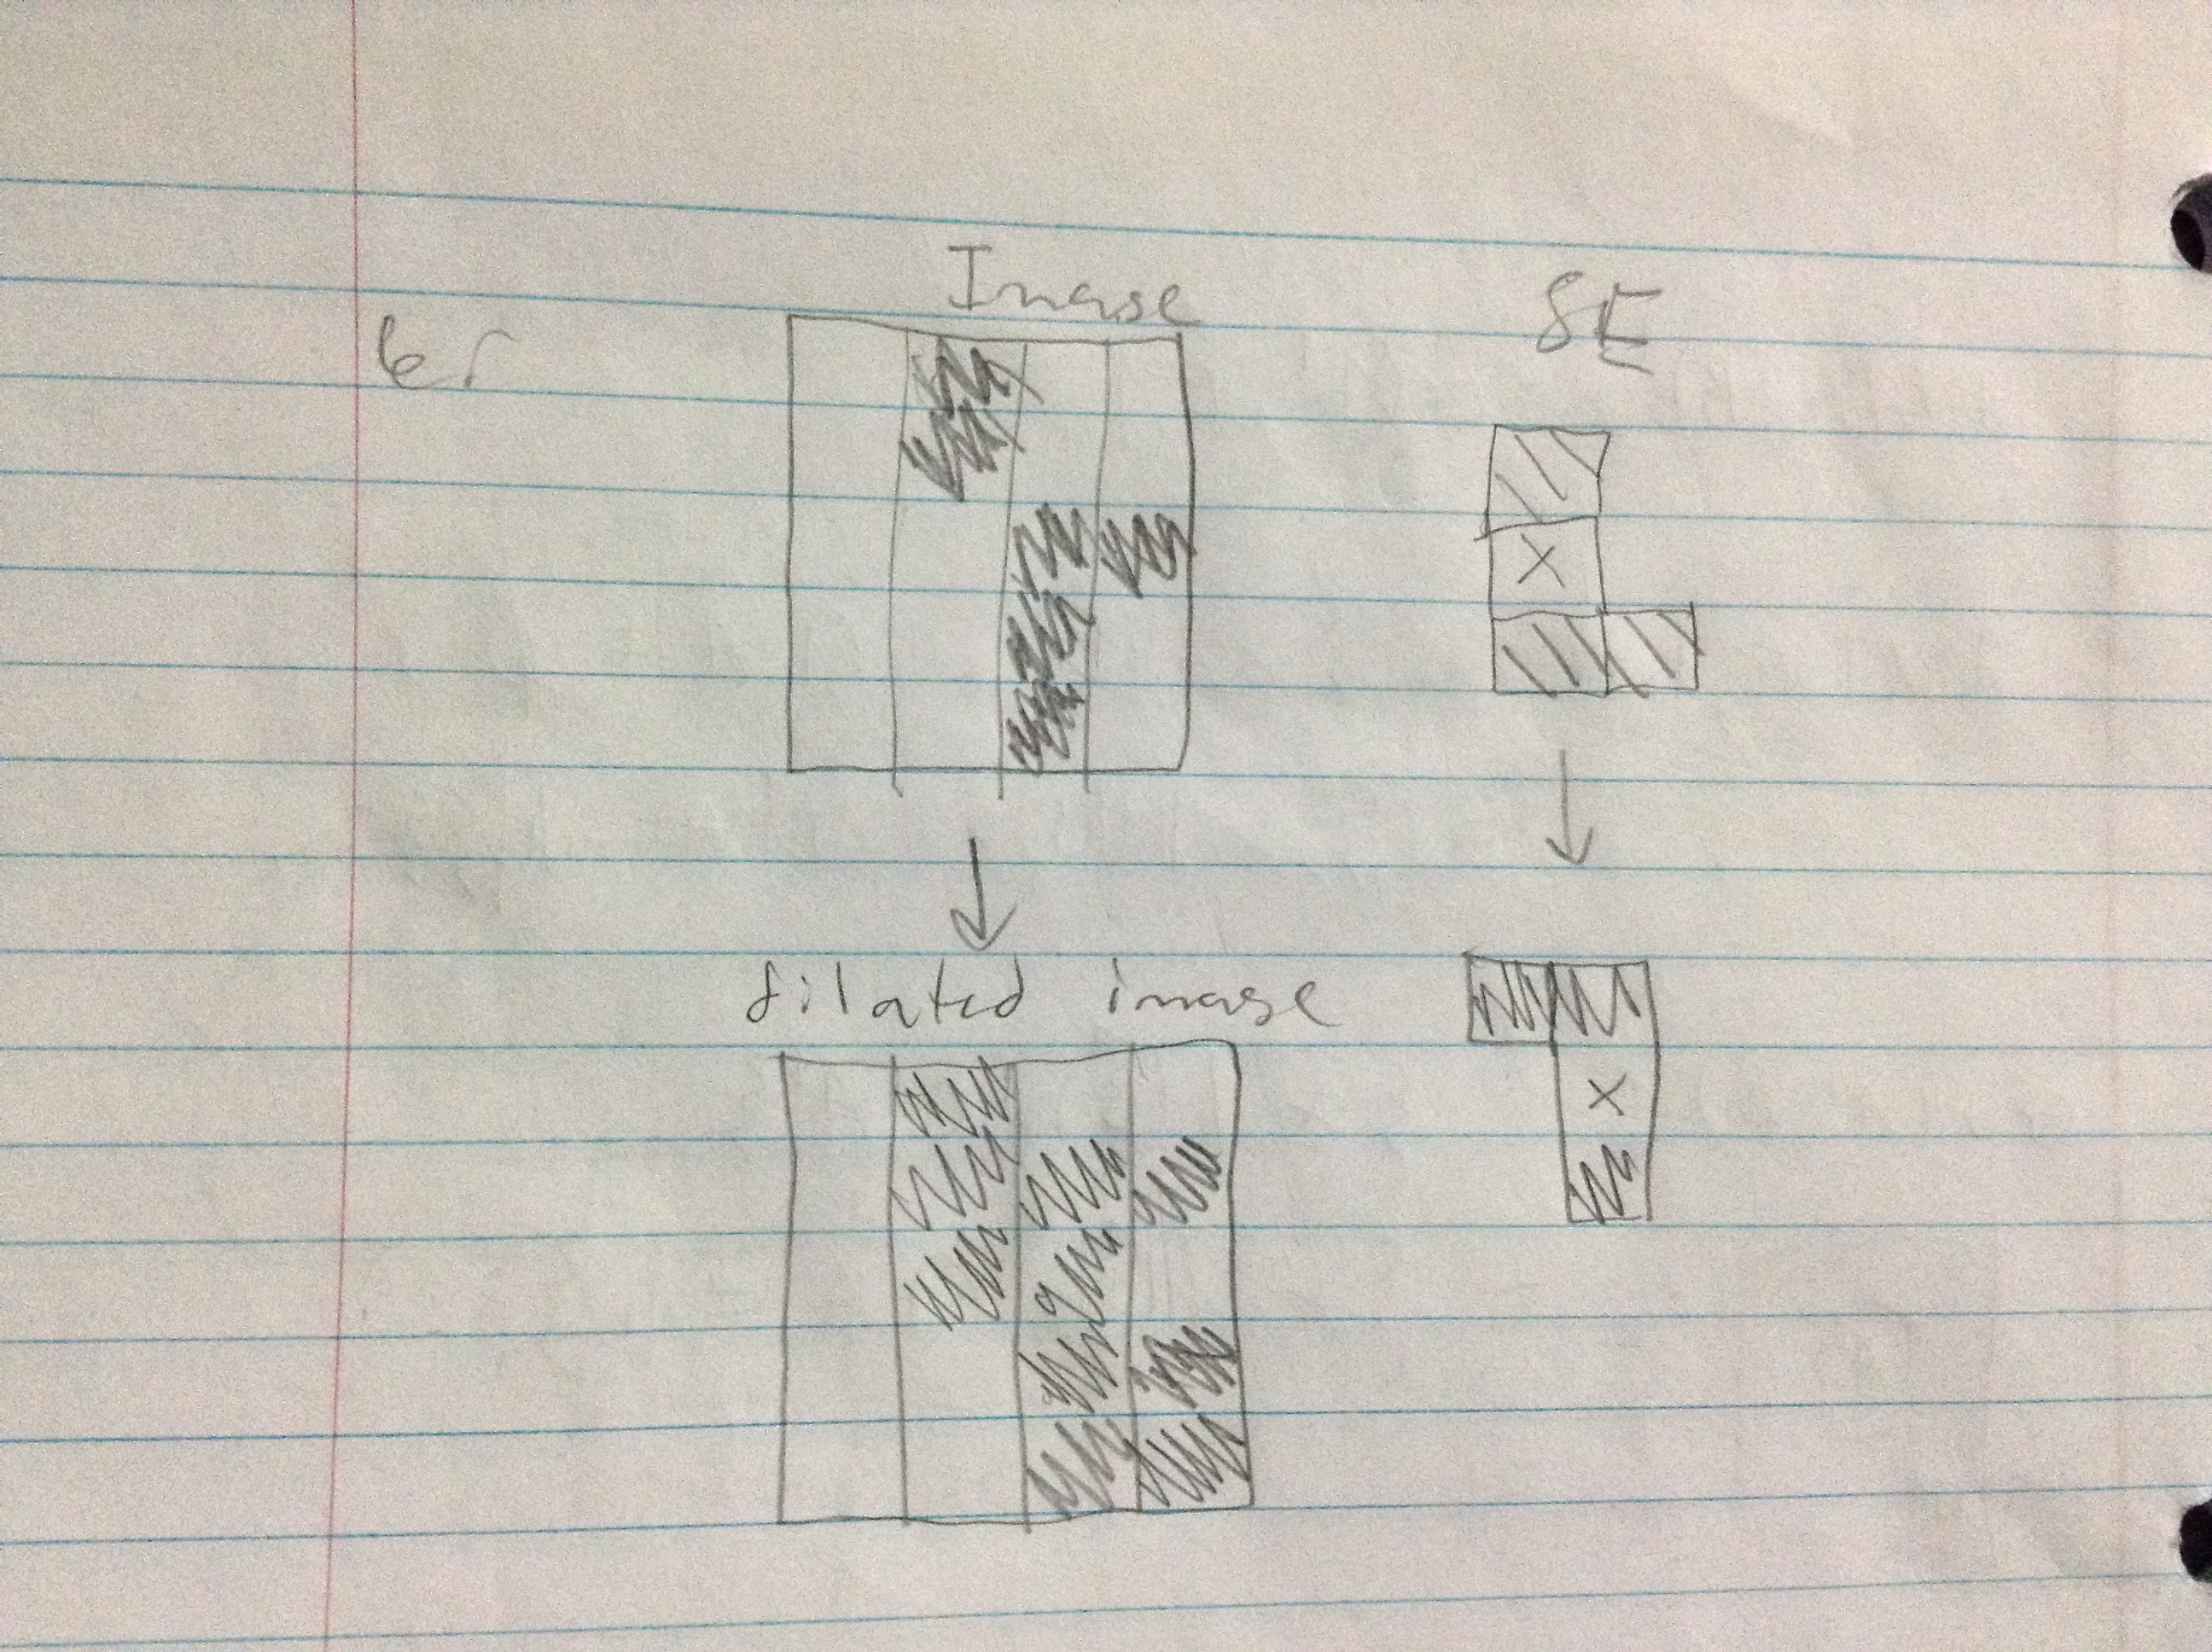 Image SE
6
X
dilated image
X